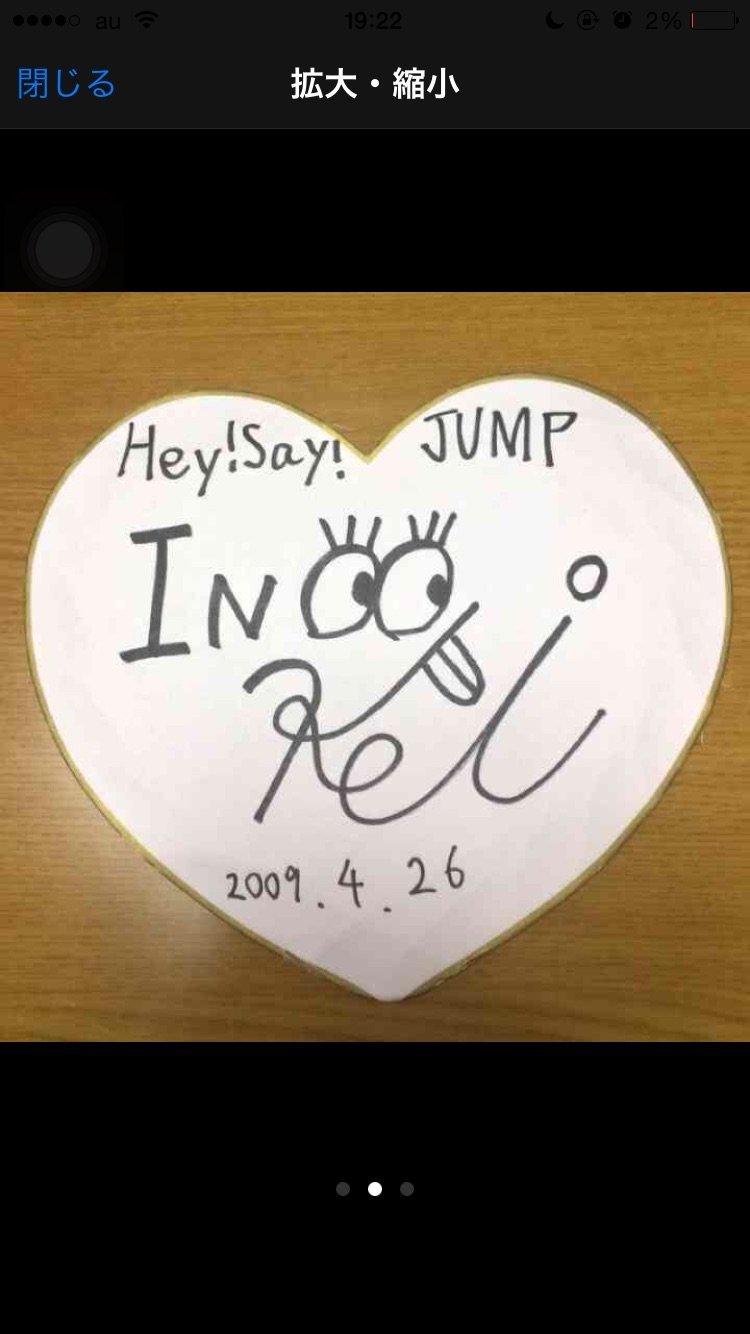 au 19:22 2%
閉じる 拡大・縮小
Hey!Say! JUMP
INOO
Kei
2009.4.26